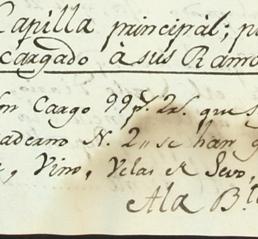 Capilla principal; p
cargado à sus Ramo
en Cargo 99 p.s 2 r.s que s
uaderno N. 2,, se han g
, Vino, Velas de Sevo,
Ala B